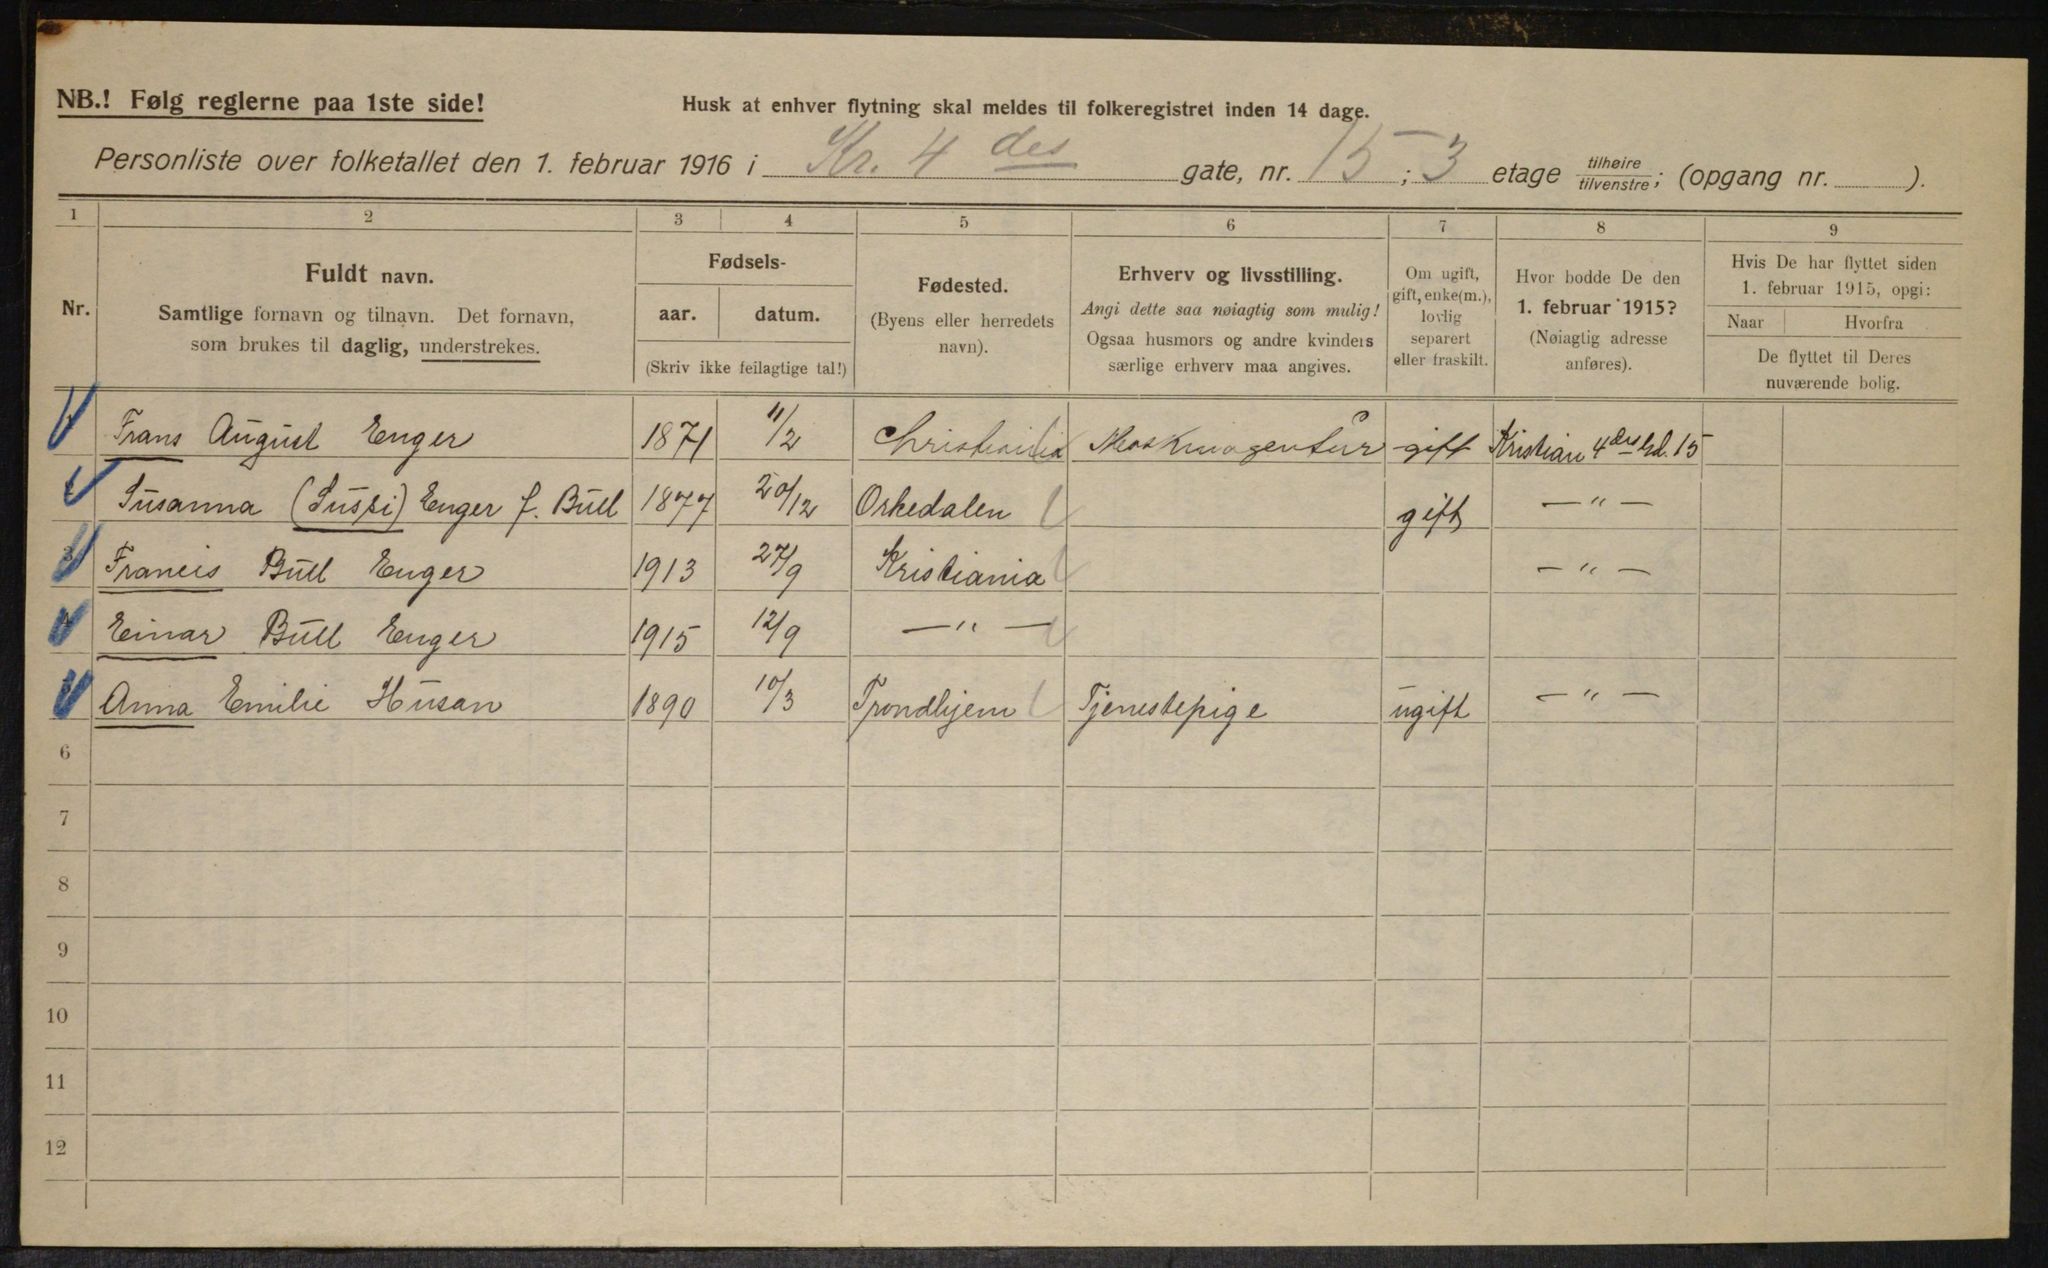 NB.! Følg reglerne paa 1ste side!
Husk at enhver flytning skal meldes til folkeregistret inden 14 dage.
Personliste over folketallet den 1. februar 1916 i Kr. 4 des gate, nr. 15; 3 etage tilhøire/tilvenstre; (opgang nr. ).
1 2 3 4 5 6 7 8 9
Nr.
Fuldt navn.
Samtlige fornavn og tilnavn. Det fornavn,
som brukes til daglig, understrekes.
Fødsels-
aar. datum.
(Skriv ikke feilagtige tal!)
Fødested.
(Byens eller herredets
navn).
Erhverv og livsstilling.
Angi dette saa nøiagtig som mulig!
Ogsaa husmors og andre kvinders
særlige erhverv maa angives.
Om ugift,
gift, enke(m.),
lovlig
separert
eller fraskilt.
Hvor bodde De den
1. februar 1915?
(Nøiagtig adresse
anføres).
Hvis De har flyttet siden
1. februar 1915, opgi:
Naar Hvorfra
De flyttet til Deres
nuværende bolig.
Frans August Enger 1871 11/2 Christiania Maskinagentur gift Kristian 4des gd. 15
Susanna (Sussi) Enger f. Bull 1877 20/12 Orkedalen gift — " —
3 Francis Bull Enger 1913 27/9 Kristiania — " —
4 Einar Bull Enger 1915 12/9 — " —
5 Anna Emilie Husan 1890 10/3 Trondhjem Tjenestepige ugift — " —
6
7
8
9
10
11
12